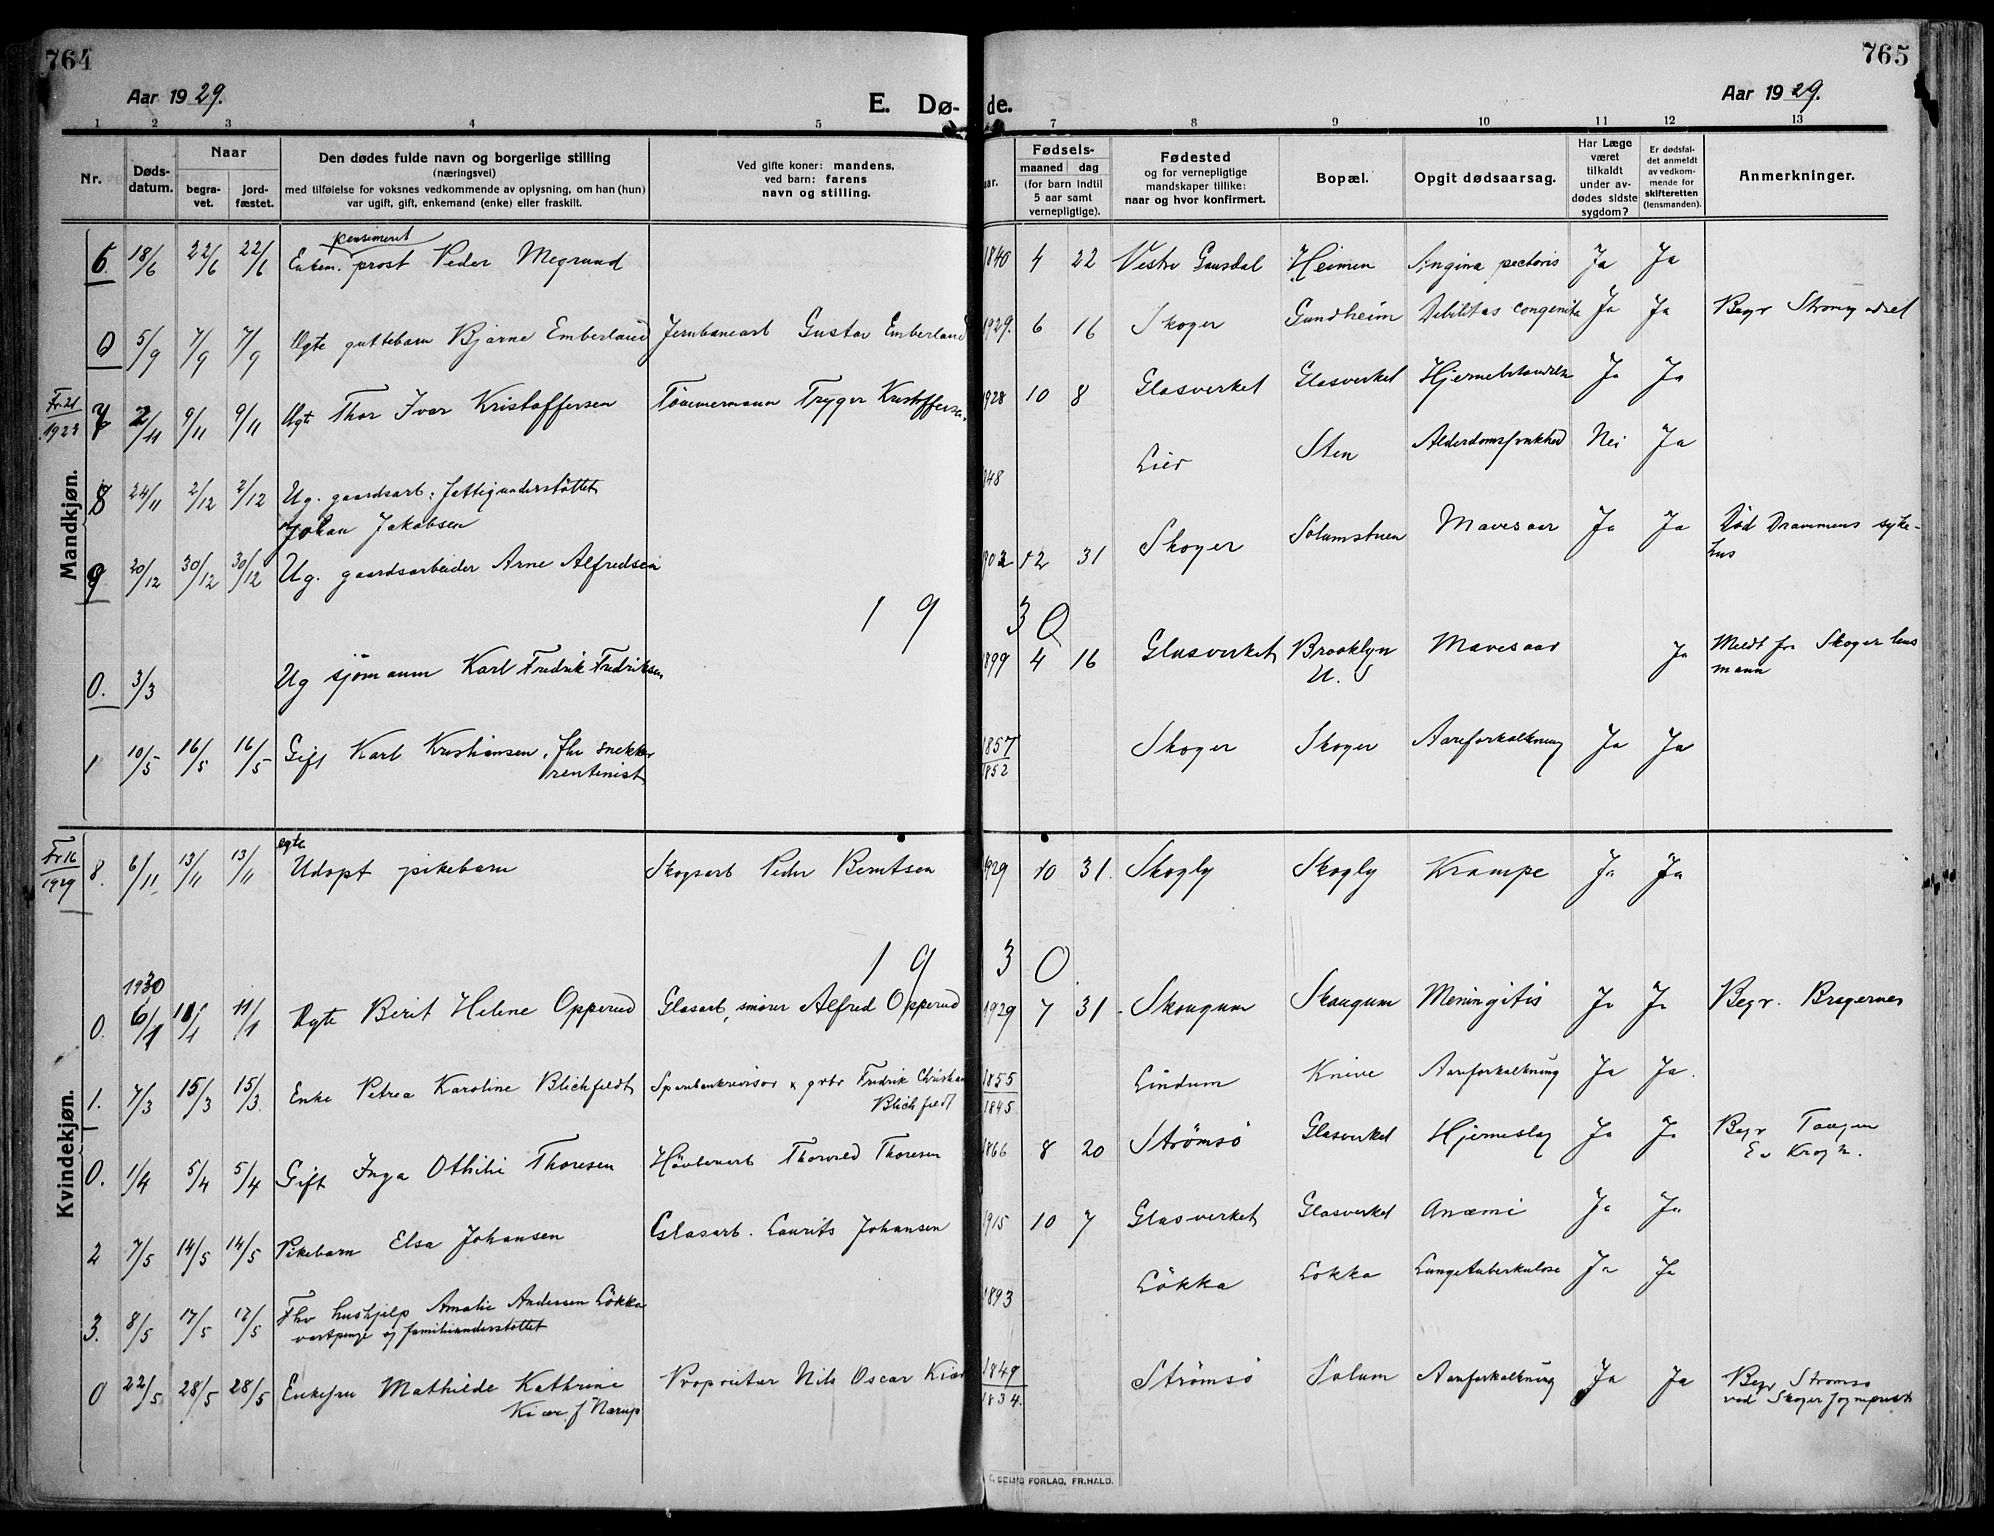 764
765
Aar 1929.
E. Dø-
de.
Aar 1929.
1 2 3 4 5 7 8 9 10 11 12 13
Nr.
Døds-
datum.
Naar
begra-
vet.
jord-
fæstet.
Den dødes fulde navn og borgerlige stilling
(næringsvei)
med tilføielse for voksnes vedkommende av oplysning, om han (hun)
var ugift, gift, enkemand (enke) eller fraskilt.
Ved gifte koner: mandens,
ved barn: farens
navn og stilling.
aar.
Fødsels-
maaned dag
(for barn indtil
5 aar samt
vernepligtige).
Fødested
og for vernepligtige
mandskaper tillike:
naar og hvor konfirmert.
Bopæl.
Opgit dødsaarsag.
Har Læge
været
tilkaldt
under av-
dødes sidste
sygdom?
Er dødsfal-
det anmeldt
av vedkom-
mende for
skifteretten
(lensmanden).
Anmerkninger.
Mandkjøn.
pensioneret
6. 18/6 22/6 22/6 Enkem. prost Peder Megrund 1840 4 22 Vestre Gausdal Heimen Angina pectoris Ja Ja
0 5/9 7/9 7/9 Ægte guttebarn Bjarne Emberland Jernbanearb Gustav Emberland 1929. 6 16 Skoger Gundheim Debilitas congenita Ja Ja Begr
Fr. 21
7 2/11 9/11 9/11 Ægte Thor Ivar Kristoffersen Tömmermann Trygve Kristoffersen 1928 10 8 Glasverket Glasverket Ja Ja
8 24/11 2/12 2/12 Ug. gaardsarb: fattigunderstöttet 848 Lier Sten Nei Ja
Johan Jakobsen
9 20/12 30/12 30/12 Ug. gaardsarbeider Arne Alfredsen 1902 12 31 Skoger Solumstuen Mavesaar Ja Ja Död Drammens syke-
hus
1 9 3 0
0. 3/3 Ug sjömann Karl Fredrik Fredriksen 1899 4 16 Glasverket Brooklyn Mavesaar Ja Meldt fra Skoger lens
U. S mann
1 10/5 16/5 16/5 Gift Karl Kristiansen, fhv snekker 1857 Skoger Skoger Aareforkalkning Ja Ja
rentenist 1852
Kvindekjøn.
Fr 16
1929
egte
8. 6/11 13/11 13/11 Udöpt pikebarn Skogsarb Peder Berntsen 1929 10 31. Skogly Skogly Krampe Ja Ja
1 9 3 0
1930
0. 6/1 11/1 11/1 Ægte Berit Helene Opperud Glasarb, smörer Alfred Opperud 1929 7 31 Skougum Skougum Meningitis Ja Ja Begr. Bragernes
1. 7/3 15/3 15/3. Enke Petrea Karoline Blichfeldt Sparebankrevisor x grbr Fredrik Christian 1855 Lindum Knive Aareforkalkning Ja Ja.
Blichfeldt 1845
0. 1/4 5/4 5/4 Gift Inga Othilie Thoresen Hövlearb Thorvald Thoresen 1866 8 20 Strömsö Glasverket Hjerneslag Ja Ja Begr Tangen
2 7/5 14/5 14/5 Pikebarn Elsa Johansen Glasarb. Laurits Johansen 1915 10 7 Glasverket Glasverket Anæmi Ja Ja
3. 8/5 17/5 17/5 Fhv hushjelp Amalie Andersen Lökka 1893 Lökka Lökka Lungetuberkulose Ja Ja
0 22/5 28/5 28/5 Enkefru Mathilde Kathrine Proprietær Nils Oscar Kiær 1849 Strömsö Solum Aareforkalkning Ja Ja Begr Strömsö
Kiær f Nærup 1834. ved Skoger
FORLAG, FR.HALD.